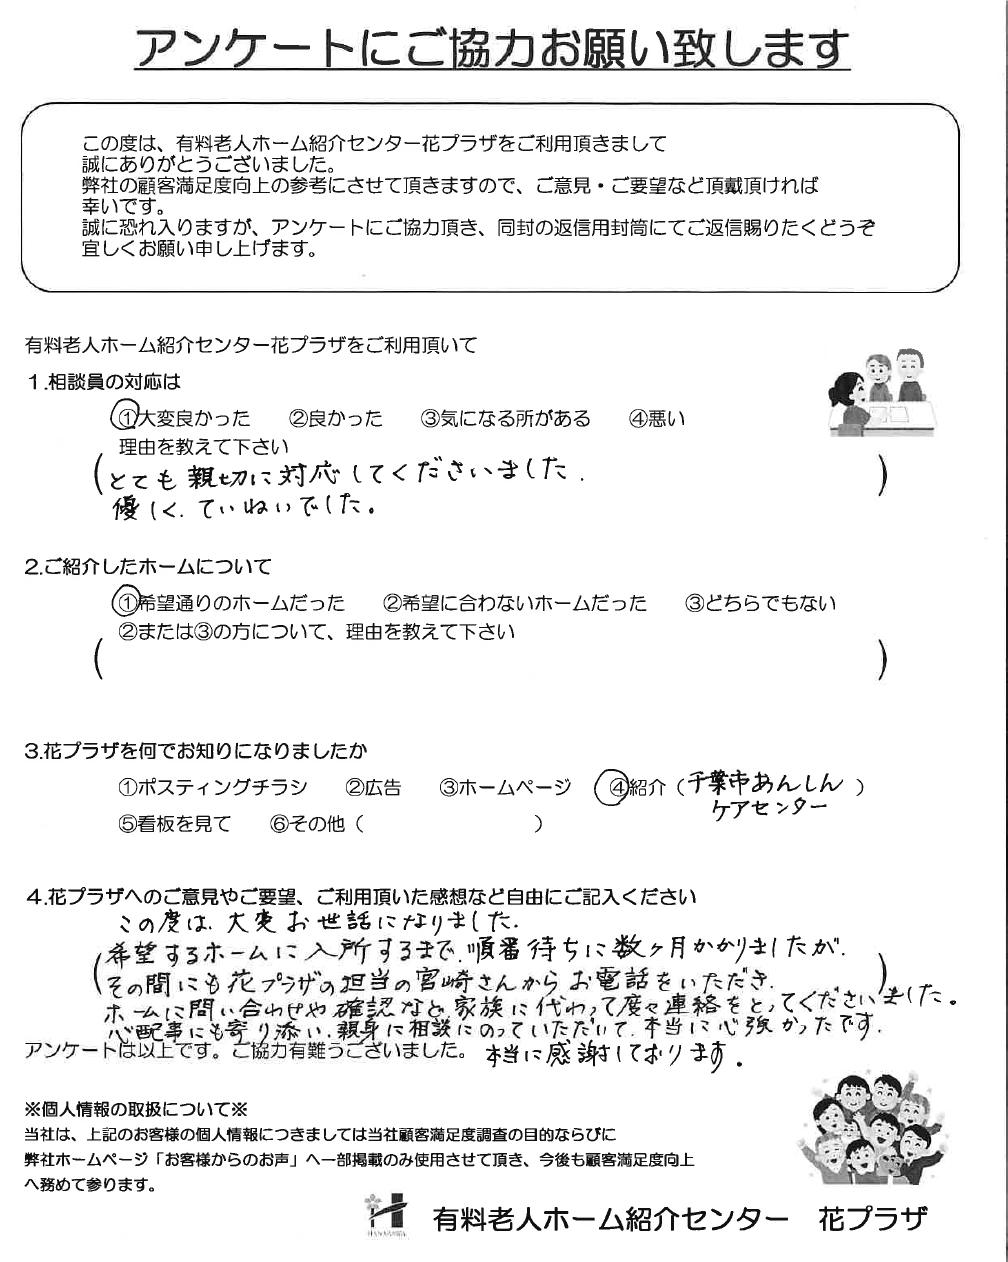 アンケートにご協力お願い致します
この度は、有料老人ホーム紹介センター花プラザをご利用頂きまして
誠にありがとうございました。
弊社の顧客満足度向上の参考にさせて頂きますので、ご意見・ご要望など頂戴頂ければ
幸いです。
誠に恐れ入りますが、アンケートにご協力頂き、同封の返信用封筒にてご返信賜りたくどうぞ
宜しくお願い申し上げます。
有料老人ホーム紹介センター花プラザをご利用頂いて
１.相談員の対応は
①大変良かった　②良かった　③気になる所がある　④悪い
理由を教えて下さい
(とても親切に対応してくださいました.
優しく.ていねいでした。)
2.ご紹介したホームについて
①希望通りのホームだった　②希望に合わないホームだった　③どちらでもない
②または③の方について、理由を教えて下さい
(　)
3.花プラザを何でお知りになりましたか
①ポスティングチラシ　②広告　③ホームページ　④紹介（千葉市あんしん
ケアセンター）
⑤看板を見て　⑥その他（　）
４.花プラザへのご意見やご要望、ご利用頂いた感想など自由にご記入ください
この度は.大変お世話になりました.
(希望するホームに入所するまで.順番待ちに数ヶ月かかりましたが.
その間にも花プラザの担当の宮崎さんからお電話をいただき.)
ホームに問い合わせや確認など.家族に代わって度々連絡をとってくださいました。
心配事にも寄り添い.親身に相談にのっていただいて.本当に心強かったです.
アンケートは以上です。ご協力有難うございました。 本当に感謝しております。
※個人情報の取扱について※
当社は、上記のお客様の個人情報につきましては当社顧客満足度調査の目的ならびに
弊社ホームページ「お客様からのお声」へ一部掲載のみ使用させて頂き、今後も顧客満足度向上
へ務めて参ります。
HANAPLAZA
有料老人ホーム紹介センター　花プラザ